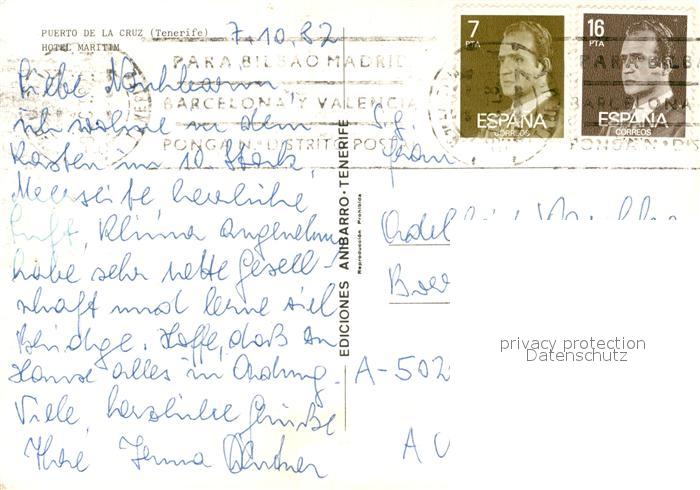 PUERTO DE LA CRUZ (Tenerife)
HOTEL MARITIM
7.10.82
7
PTA
16
PTA
ESPAÑA
CORREOS
ESPAÑA
CORREOS
PARA BILBAO MADRID
BARCELONA Y VALENCIA
PONGA N. DISTRITO POSTAL
PARA BILB
BARCELONA
PONGA N. DIS
Liebe
ich wohne in dem
Kasten im 10. Stock,
Meerseite, herrliche
Luft, Klima angenehm
habe sehr nette Gesell-
schaft und lerne viel
Bridge. Hoffe, daß zu
Hause alles in Ordnung.
Viele herzliche Grüße
Ihre
EDICIONES ANIBARRO-TENERIFE
Reproducción Prohibida
A-502
privacy protection
Datenschutz